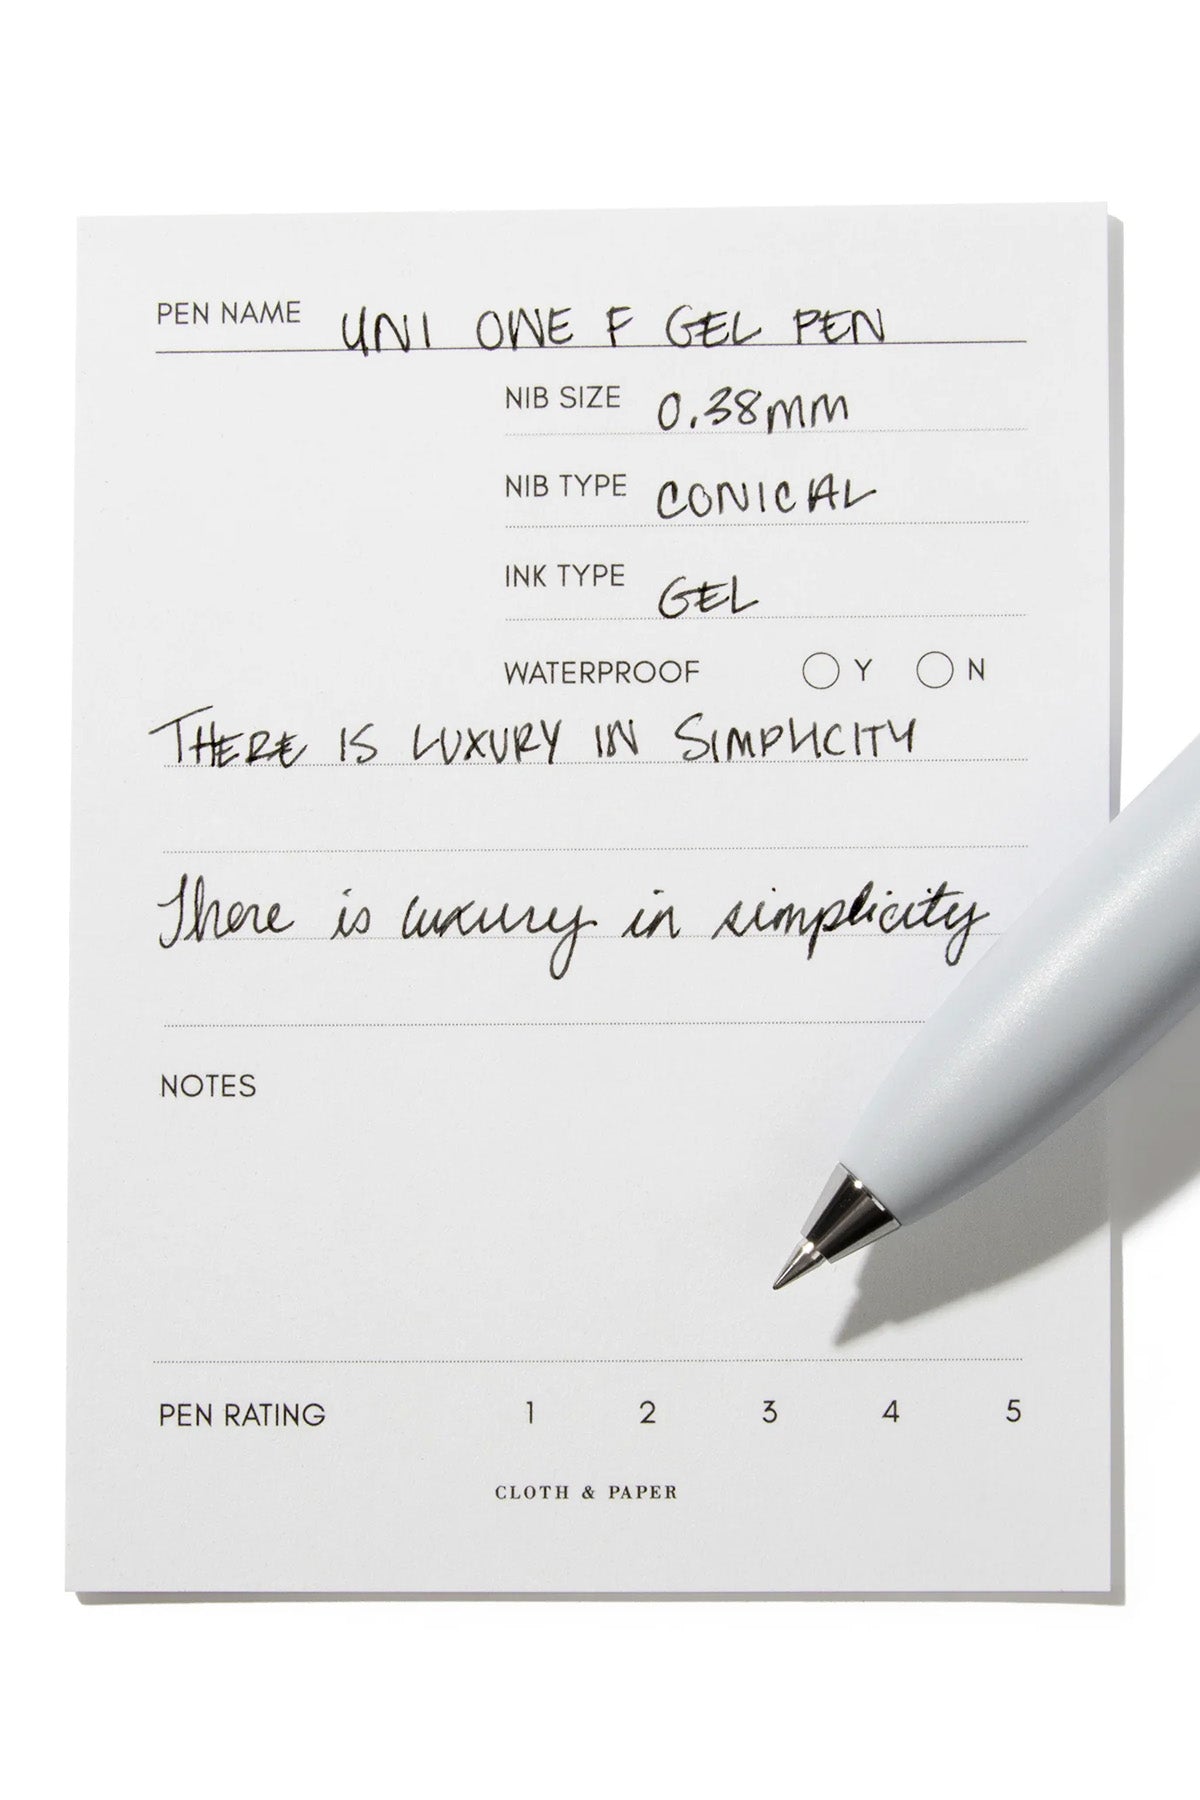 PEN NAME UNI ONE F GEL PEN
NIB SIZE 0.38mm
NIB TYPE CONICAL
INK TYPE GEL
WATERPROOF Y N
THERE IS LUXURY IN SIMPLICITY
There is luxury in simplicity
NOTES
PEN RATING 1 2 3 4 5
CLOTH & PAPER